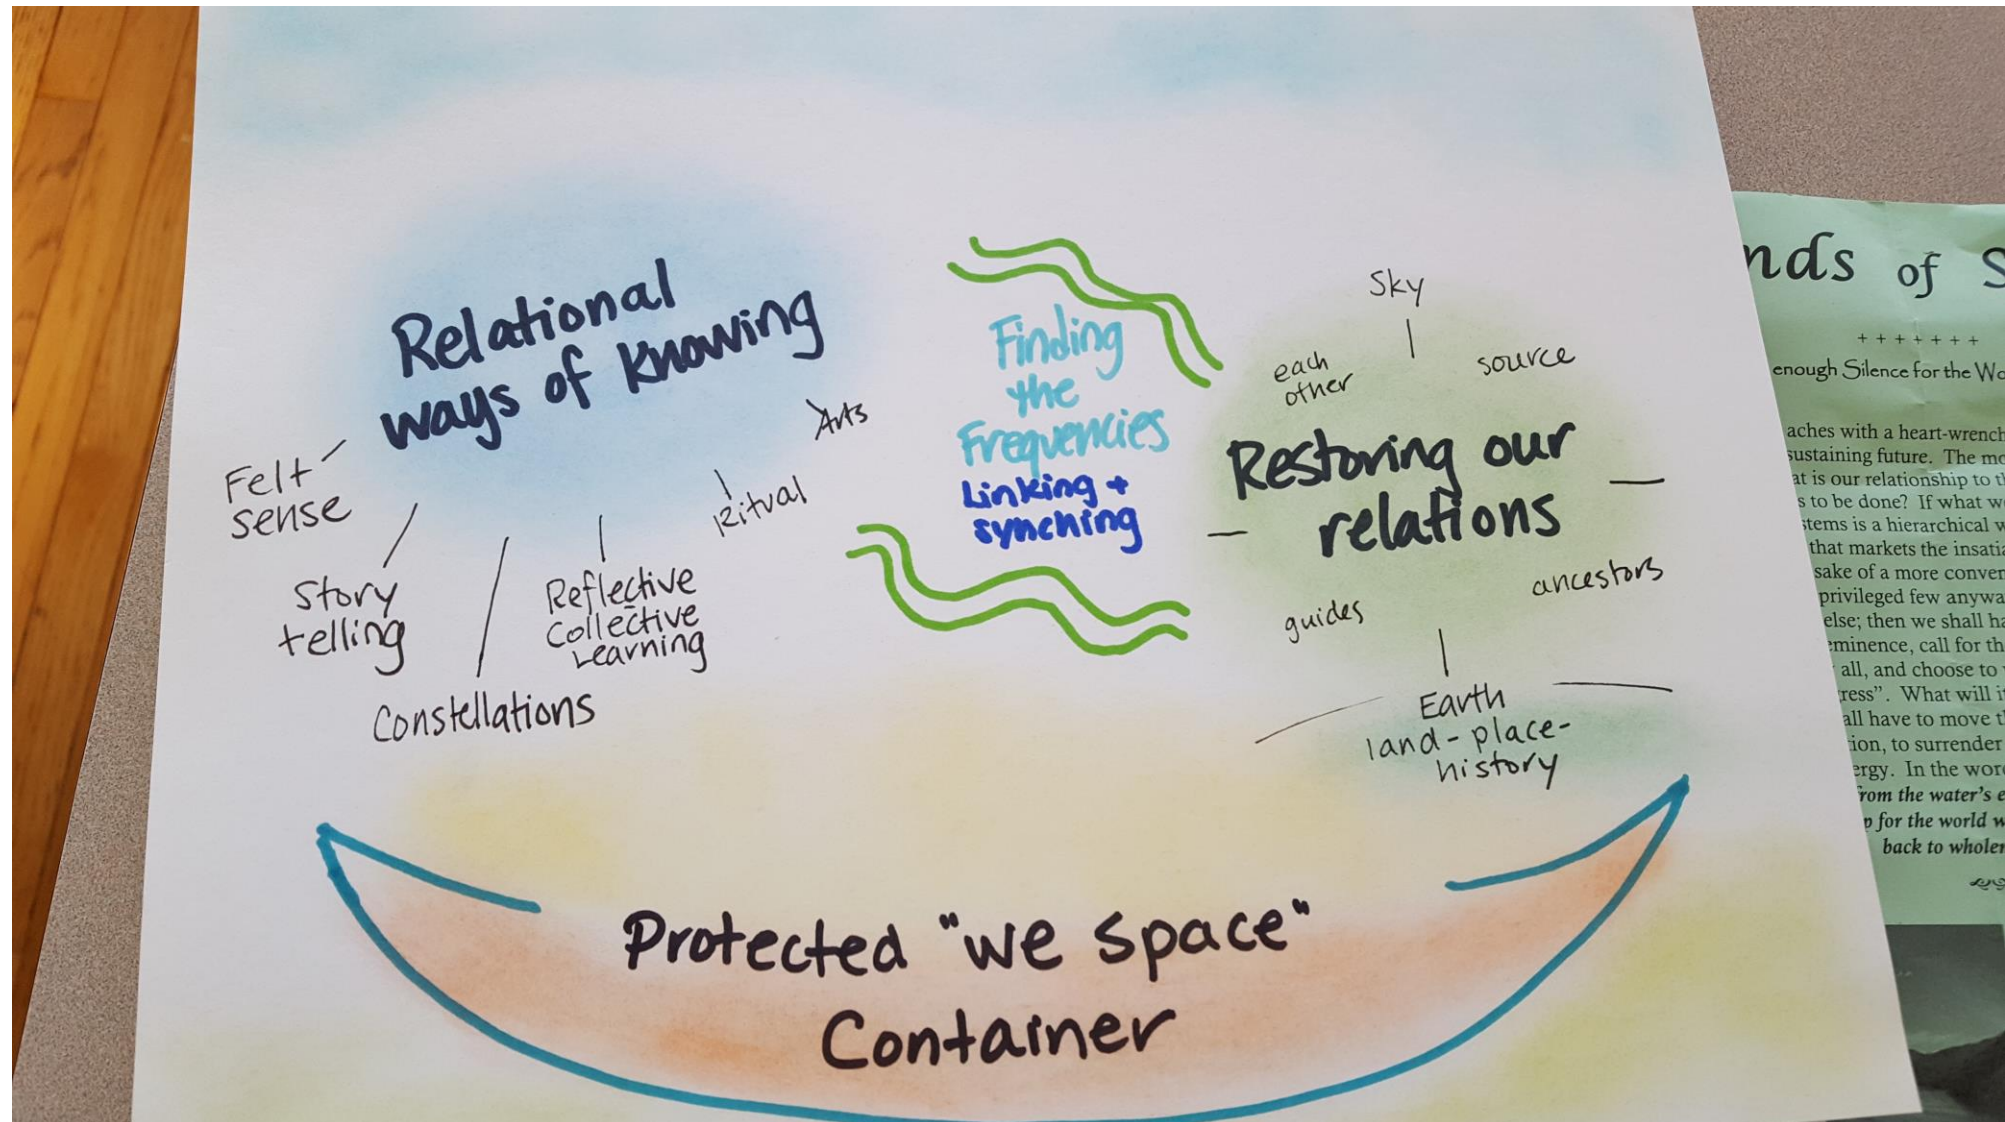 Relational
ways of knowing
Felt
sense
Story
telling
Constellations
Reflective
Collective
Learning
Ritual
Arts
Finding
the
Frequencies
Linking +
synching
Sky
each
other
source
Restoring our
relations
guides
ancestors
Earth
land-place-
history
Protected "we space"
Container
of
+ + + + + + +
enough Silence for the
aches with a
sustaining future. The
is our relationship to
to be done? If what
is a hierarchical
that markets the
sake of a more
privileged few
else; then we shall
call for
all, and choose to
". What will
all have to move
to surrender
In the
from the water's
for the world
back to